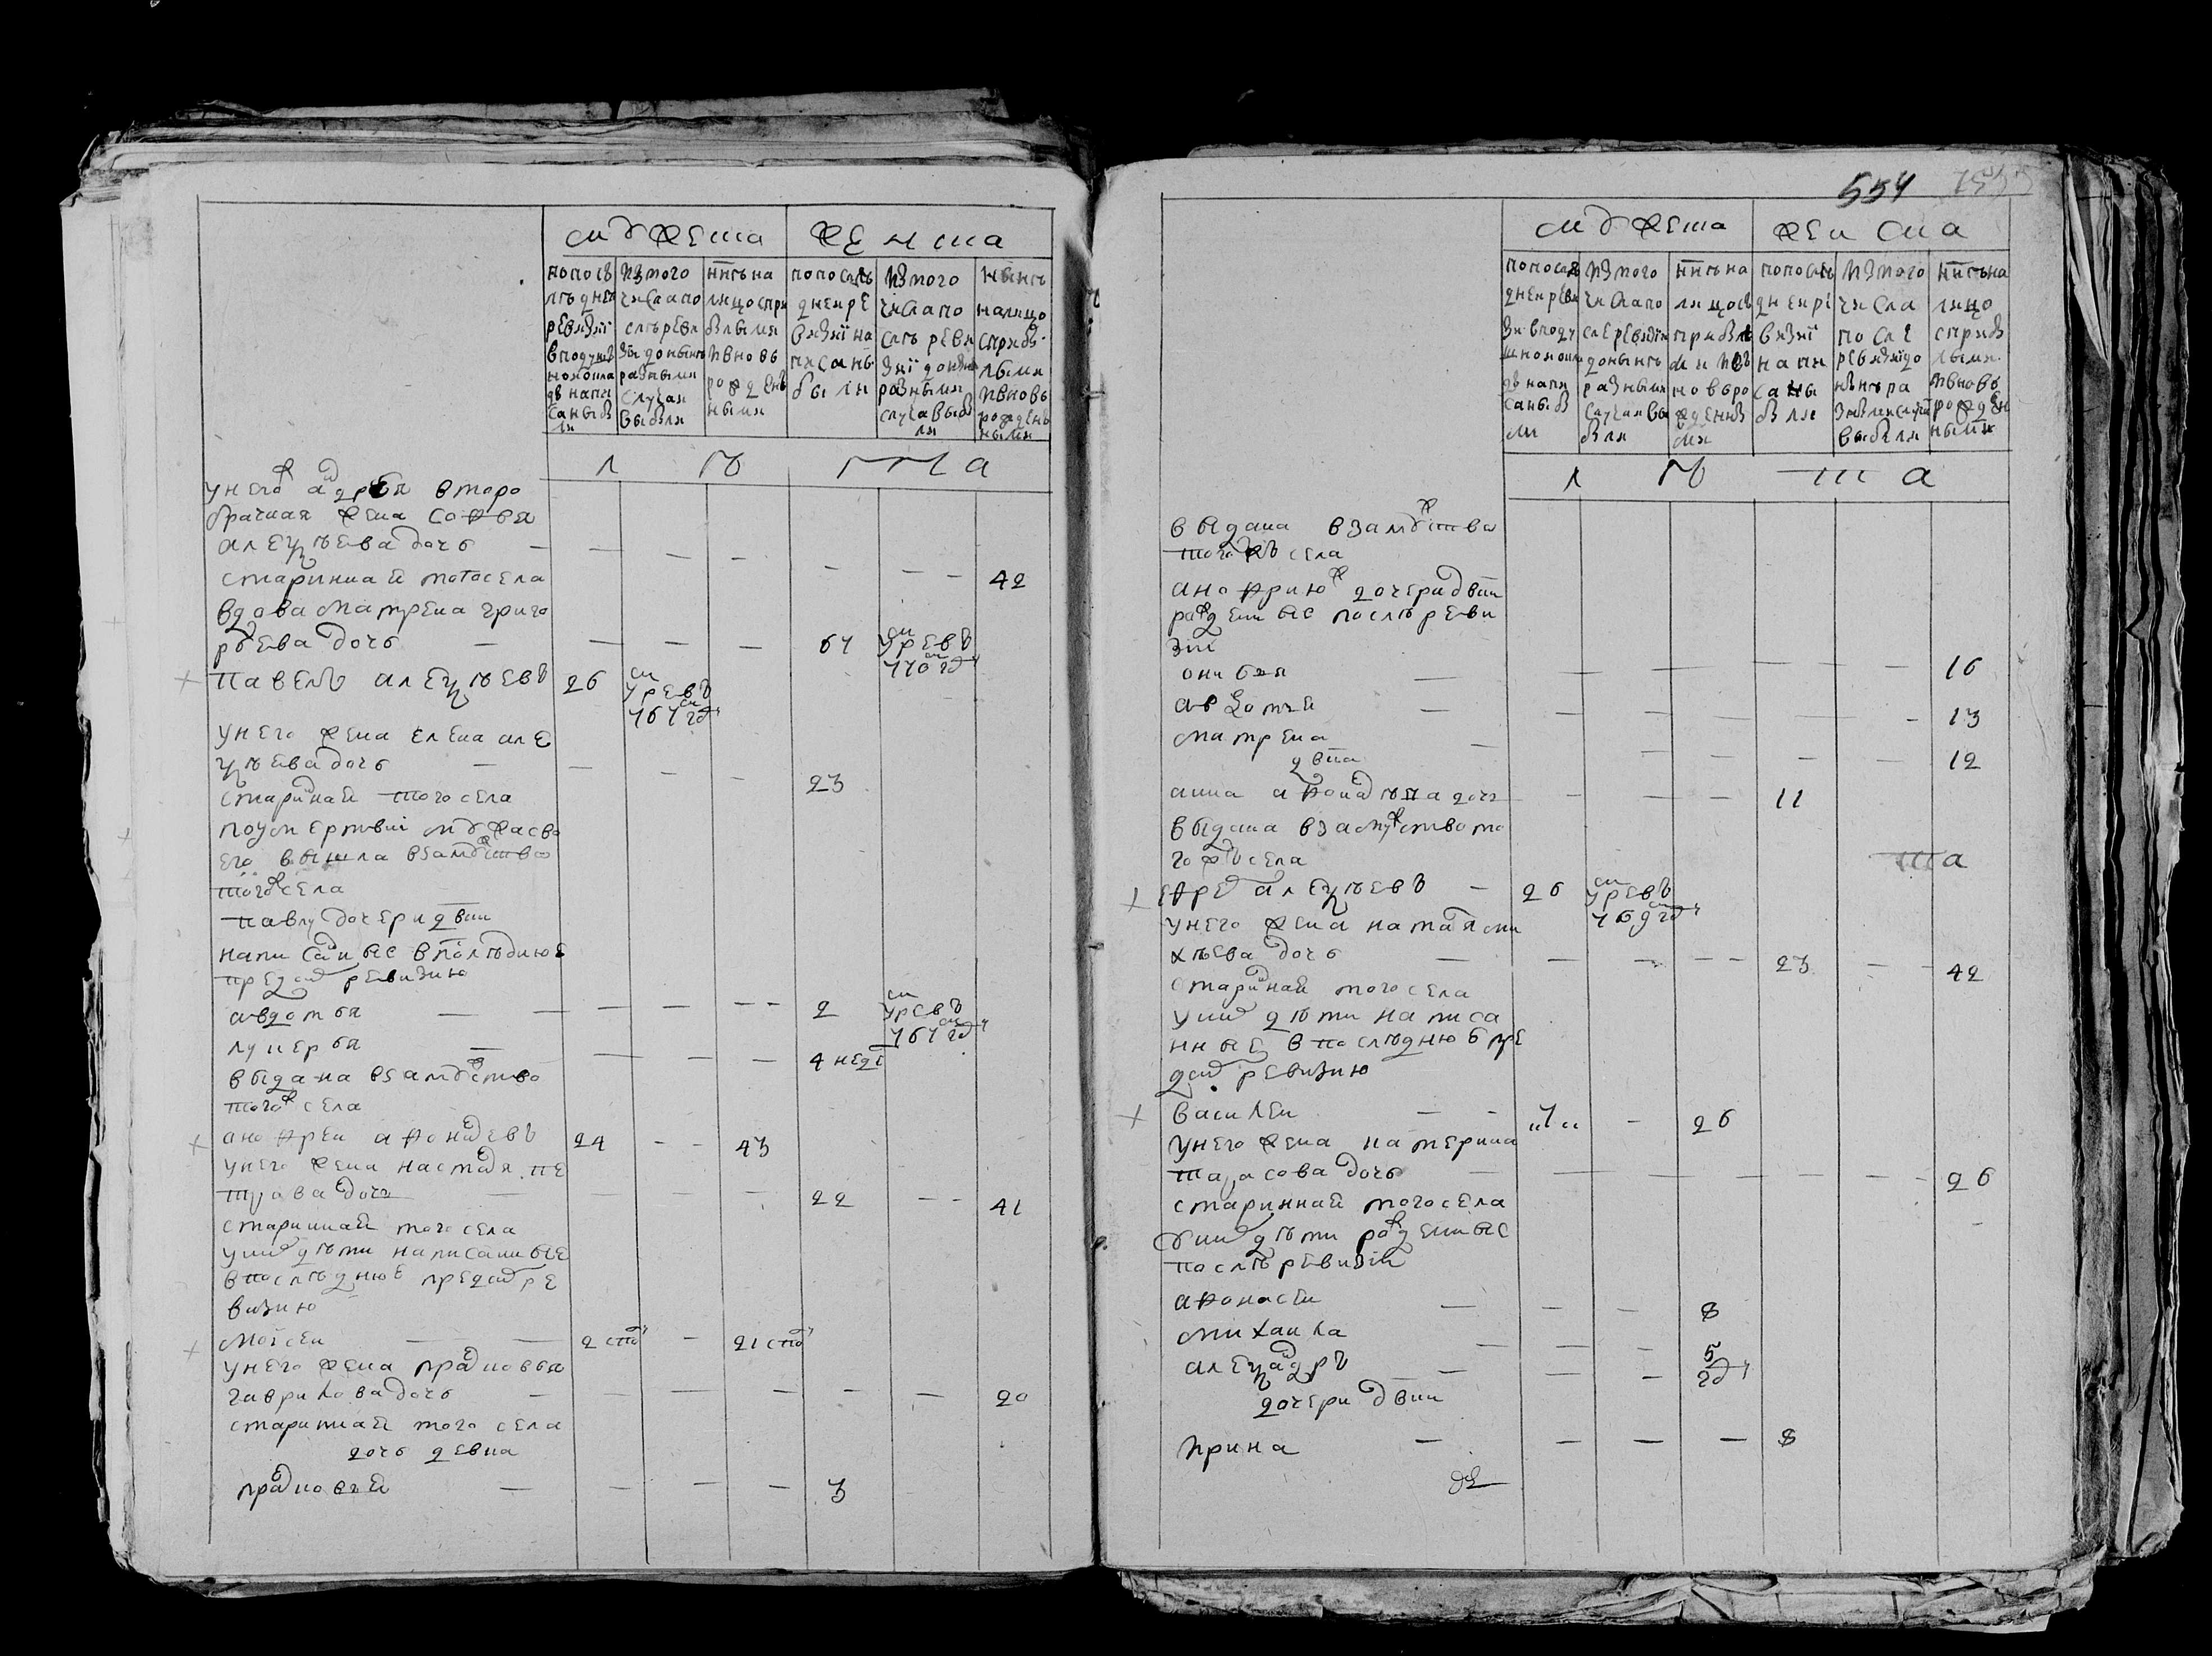 мужеска
женска
попосл
лѣдней
ревизіи
вподушн
номокла
дѣ напи
саны бы
ли
изтого
числа по
слѣ реви
зіи донынѣ
разными
случаи
выбыли
ннѣ на
лицо спри
былыми
ивновь
рожден
ными
попослѣ
дней ре
визіи на
писаны
были
изтого
числа по
слѣ реви
зіи донынѣ
разными
случа выбы
ли
нынѣ
налицо
сприбы
лыми
ивновь
рожден
ными
лѣта
унего ж адрея второ
брачная жена софья
алеѯѣева дочь
стариннай тогосела 42
вдова матрена григо
рьева дочь 61 умре въ 770 гд
павелъ алеѯѣевъ 26 умре въ 767 гд
унего жена елена але
ѯѣева дочь 23
старинай того села
поусмертвиі мужа сво
его вышла взамуство
того ж села
павлу дочери двки
написаныс впослѣднюю
предсм ревизию
авдотья 2 умре въ 767 гд
лукерья 4 неде
выдана взамуство
того ж села
анофреи афонасевъ 24 43
унего жена настася пе
трова дочь 22 41
стариннай того села
уних дѣти написанные
впослѣднюю предсм ре
визию
моісеи 2 21
унего жена прасковья
гаврилова дочь 20
стариннай того села
дочь девка
прасковей 3
554
мужеска
женска
попослѣ
дней реви
зи вподу
шномокла
дѣ напи
саны бы
ли
изтого
числа по
слѣ ревизіи
донынѣ
разными
случаи вы
были
ннѣ на
лицо съ
прибылы
ми ивъ
новоро
жденны
ми
попослѣ
дней ре
визиі
напи
саны
были
изтого
числа
послѣ
ревизіи до
нынѣ ра
выбыли
ннѣ на
лицо
сприбы
лыми
ивновь
рожден
ными
лѣта
выдана взамуство
того жъ села
анофрию ж дочери двки
рожденыс послѣ реви
зиі
16
авдотей 13
матрена 12
двка
анна афонасьева дочь 11
выдана взамужство то
го жъ села
алеѯѣевъ 26 умре въ
унего жена наталя ми
хѣева дочь 23 42
старинай того села
уних дѣти написа
нные впослѣднюю пре
дсм ревизию
василеи 7 26
унего жена катерина
тарасова дочь 26
стариннай того села
уних дѣти рожденныс
послѣ ревизіи
афонасеи 8
михаила 5
алеѯадръ гд
дочери двки
ирина 8